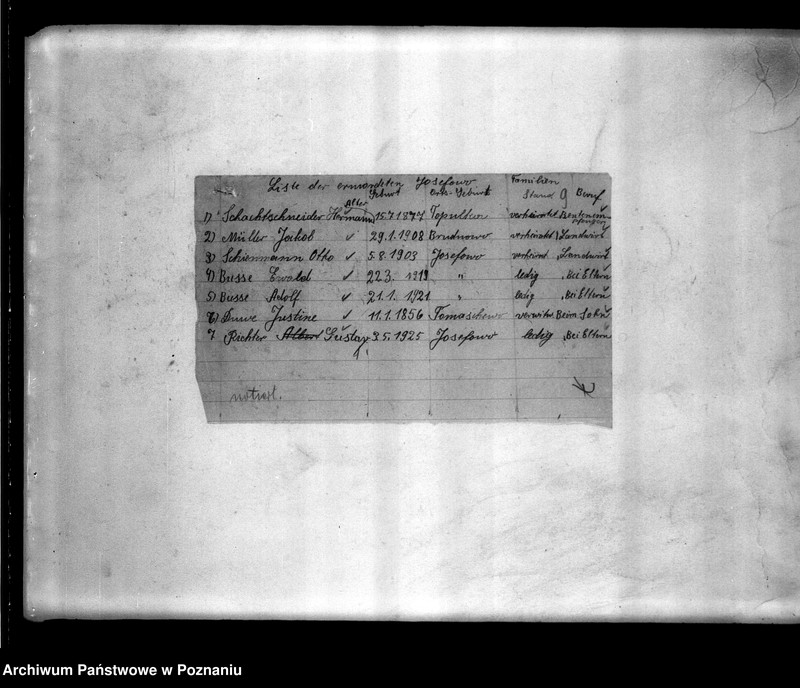 Liste der ermordeten Josefowo
Alter Geburt Orts-Geburt Familien Stand Beruf
1) Schachtschneider Hermann 15.7.1874 Topulken verheiratet
2) Müller Jakob 29.1.1908 Brudnowo verheiratet Landwirt
3) Schienmann Otto 5.8.1903 Josefowo verheirat Landwirt
4) Busse Ewald 22.3. 1919 " ledig Bei Eltern
5) Busse Adolf 21.1.1921 " ledig Bei Eltern
6) Duwe Justine 11.1.1856 Tomaschewo verwitw Beim Sohn
7 Richter Albert Gustav 3.5.1925 Josefowo ledig Bei Eltern
notiert.
Archiwum Państwowe w Poznaniu